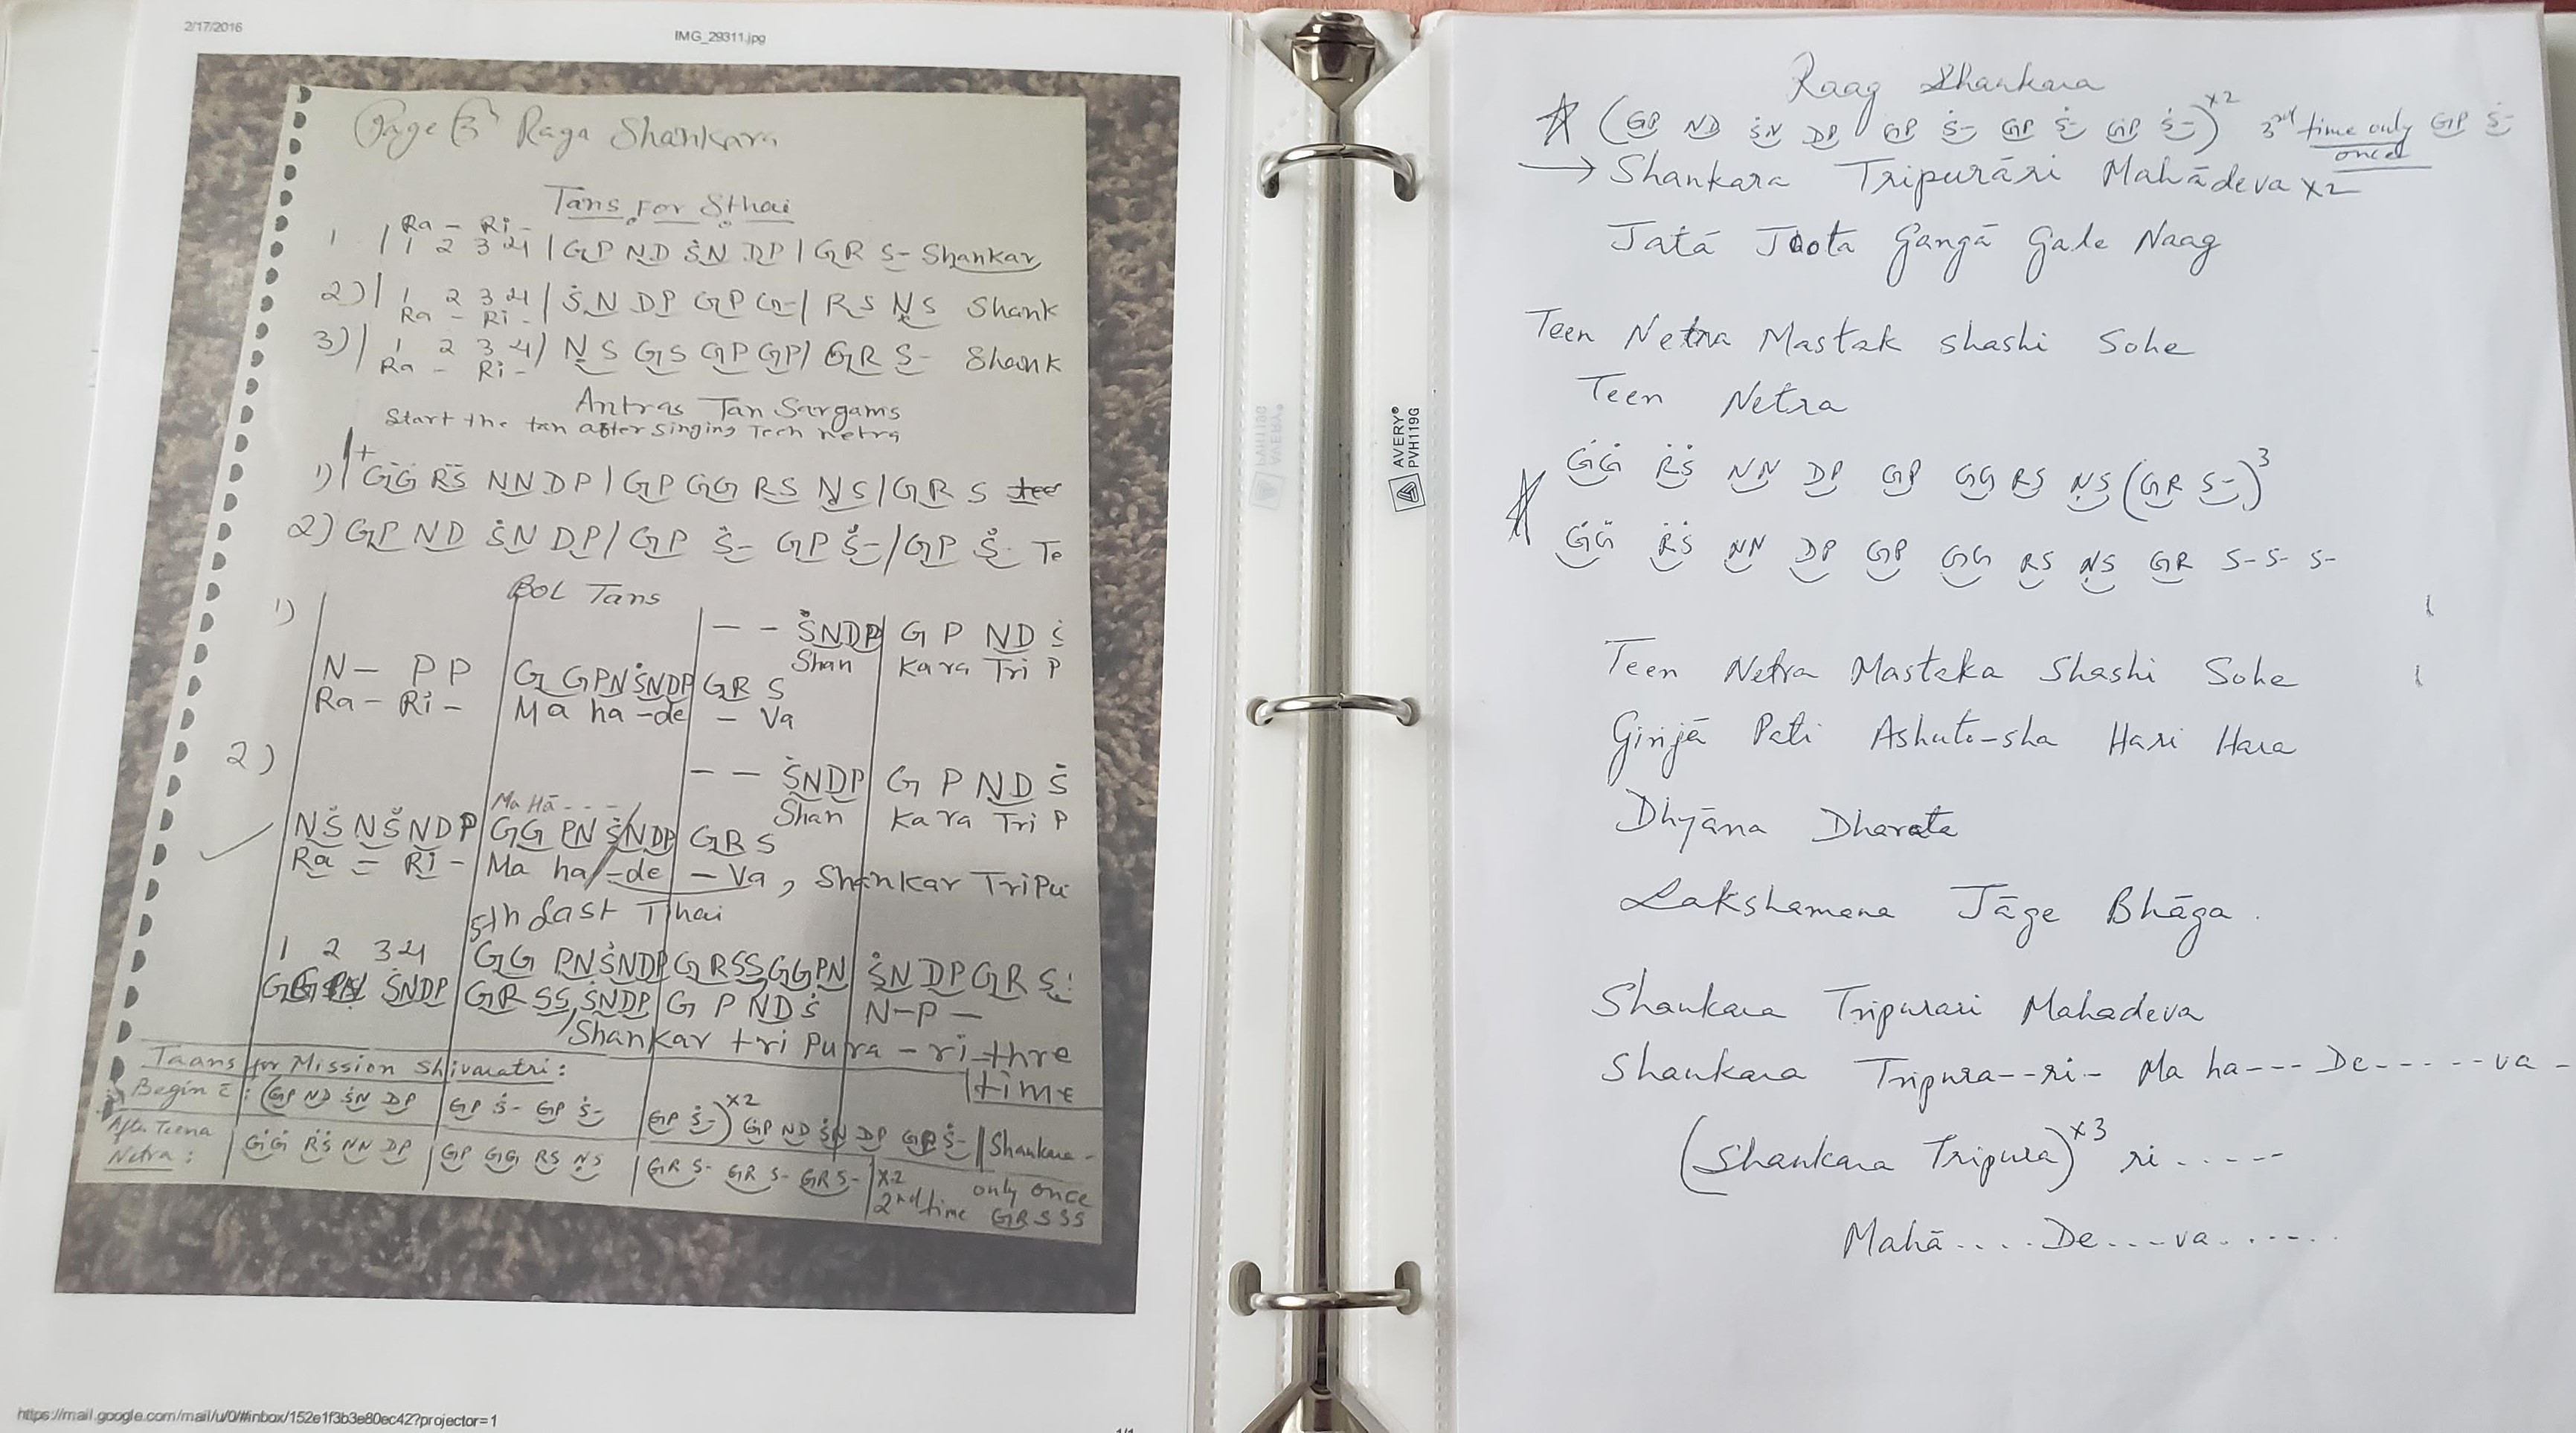 2/17/2016
IMG_29311.jpg
Page 3 Raga Shankara
Tans For Sthai
Ra - Ri -
1 | 1 2 3 4 | GP ND ṠN DP | GR S- Shankar
2) | 1 2 3 4 | ṠN DP GP G- | RS ṆS Shank
Ra - Ri -
3) | 1 2 3 4 | ṆS GS GP GP | GR S- Shank
Ra - Ri -
Antras Tan Sargams
Start the tan after singing Teen netra
1) | + ĠĠ ṘṠ NN DP | GP GG RS ṆS | GR S tee
2) GP ND ṠN DP | GP Ṡ- GP Ṡ- | GP Ṡ- Te
BOL Tans
1)
- - ṠNDP | G P ND Ṡ
Shan | Kara Tri P
N- P P | G GPN ṠNDP | GR S
Ra - Ri - | Ma ha -de | - Va
2)
- - ṠNDP | G P ND Ṡ
Ma Hā - - -
Shan | Ka ra Tri P
NṠ NṠ NDP | GG PN ṠNDP | GR S
Ra = Ri - | Ma ha -de | - Va, Shankar TriPu
5th Last Thai
1 2 3 4 | GG PN ṠNDP | GRSS, GGPN | ṠN DP GR S
ṠNDP | GR SS, ṠNDP | G P ND Ṡ | N-P-
Shankar tri Pura - ri thre
time
Taans for Mission Shivaratri:
Begin c̄: (GP ND ṠN DP | GP Ṡ- GP Ṡ- | GP Ṡ-)×2 GP ND ṠN DP GP Ṡ- || Shankara -
After Teena
Netra: | ĠĠ ṘṠ NN DP | GP GG RS ṆS | GR S- GR S- GR S- | ×2 only once
2nd time GRSSS
https://mail.google.com/mail/u/0/#inbox/152e1f3b3e80ec42?projector=1
1/1
AVERY®
PVH119G
Raag Shankara
(GP ND ṠN DP GP Ṡ- GP Ṡ- GP Ṡ-)×2 3rd time only GP Ṡ-
once
→ Shankara Tripurāri Mahādeva ×2
Jatá Joota Gangā Gale Naag
Teen Netra Mastak shashi Sohe
Teen Netra
ĠĠ ṘṠ NN DP GP GG RS ṆS (GR S-)3
ĠĠ ṘṠ NN DP GP GG RS ṆS GR S- S- S-
Teen Netra Mastaka Shashi Sohe
Girijā Pati Ashuto-sha Hari Hara
Dhyāna Dharata
Lakshamana Jāge Bhāga.
Shankara Tripurari Mahadeva
Shankara Tripura--ri- Ma ha--- De------va-
(Shankara Tripura)×3 ri.----
Mahā....De...-va......